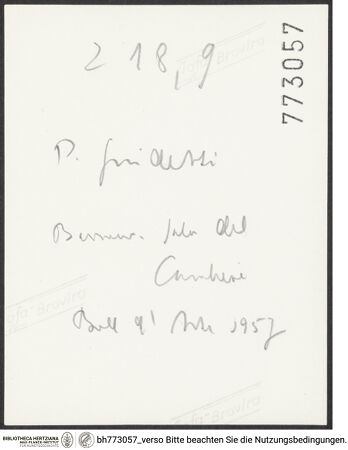 218,9
773057
P. Guidetti
Sala del
Boll d'Arte 1957
Agfa Brovira
Agfa Brovira
Agfa Brovira
BIBLIOTHECA HERTZIANA
MAX-PLANCK-INSTITUT
FÜR KUNSTGESCHICHTE
bh773057_verso Bitte beachten Sie die Nutzungsbedingungen.